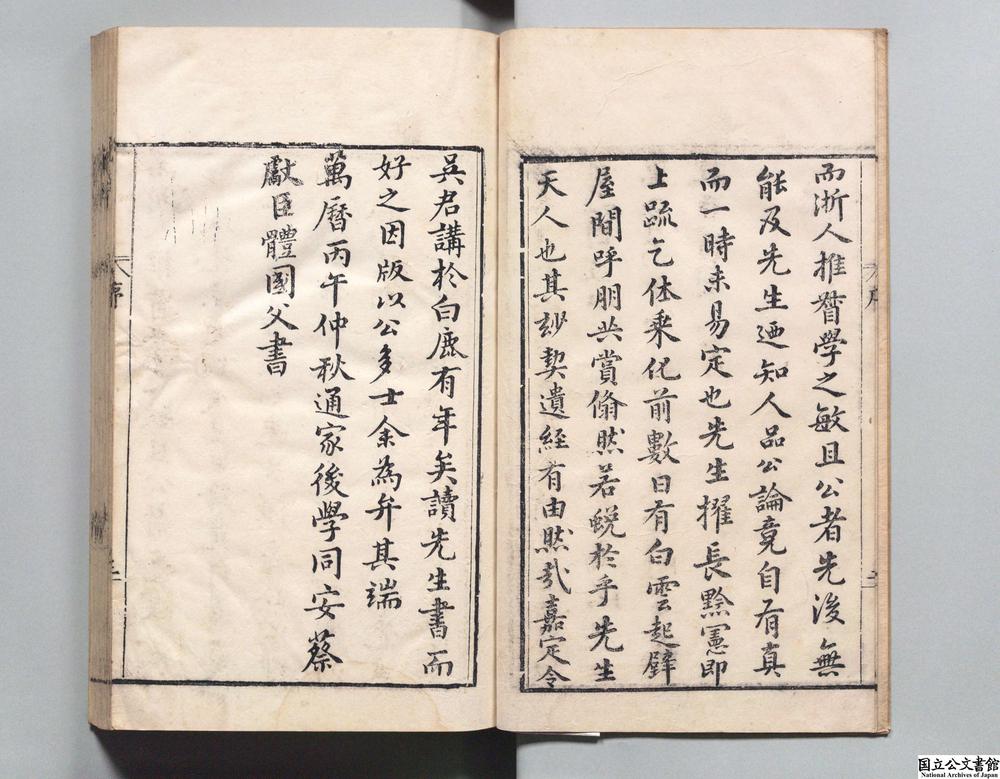 而浙人推督學之敏且公者先後無
能及先生迺知人品公論竟自有真
而一時未易定也先生擢長黔憲即
上疏乞休乘化前數日有白雲起躄
屋間呼朋共賞翛然若蛻於乎先生
天人也其玅契遺經有由然哉嘉定令
吳君講於白鹿有年矣讀先生書而
好之因版以公多士余為弁其端
萬曆丙午仲秋通家後學同安蔡
獻臣體國父書
序
三
国立公文書館
National Archives of Japan